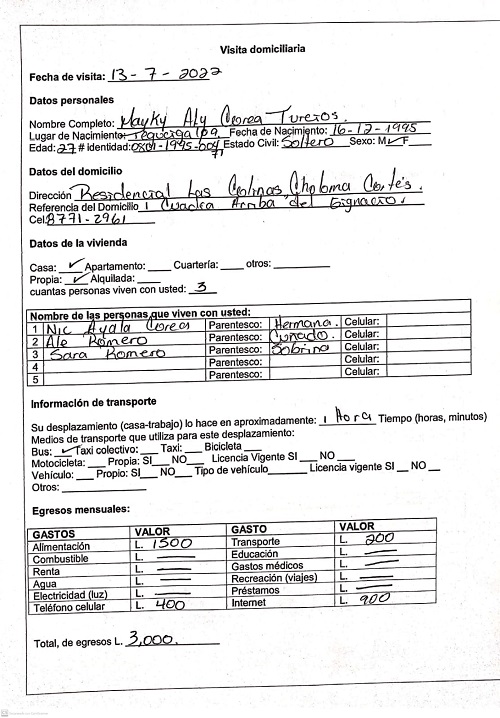 Visita domiciliaria
Fecha de visita: 13-7-2022
Datos personales
Nombre Completo: Mayky Aly Correa Turcios.
Lugar de Nacimiento: Fecha de Nacimiento: 16-12-1995
Edad: 27 # identidad: 0801-1995- Estado Civil: Soltero Sexo: M✓ F
Datos del domicilio
Dirección Residencial Las Colinas, Choloma Cortés.
Referencia del Domicilio 1 Cuadra Arriba del
Cel: 8771-2961
Datos de la vivienda
Casa: ✓ Apartamento: ____ Cuartería: ____ otros: ____
Propia: ✓ Alquilada: ____
cuantas personas viven con usted: 3
Nombre de las personas que viven con usted:
1 Nic Ayala Correa Parentesco: Hermana. Celular:
2 Ale Romero Parentesco: Cuñado. Celular:
3 Sara Romero Parentesco: Sobrina Celular:
4 Parentesco: Celular:
5 Parentesco: Celular:
Información de transporte
Su desplazamiento (casa-trabajo) lo hace en aproximadamente: 1 Hora Tiempo (horas, minutos)
Medios de transporte que utiliza para este desplazamiento:
Bus: ✓ Taxi colectivo: ___ Taxi: ___ Bicicleta ___
Motocicleta: ___ Propia: SI___ NO___ Licencia Vigente SI ___ NO___
Vehículo: ___ Propio: SI___ NO___ Tipo de vehículo______ Licencia vigente SI __ NO __
Otros: ____________
Egresos mensuales:
GASTOS VALOR GASTO VALOR
Alimentación L. 1500 Transporte L. 200
Combustible L. — Educación L. —
Renta L. — Gastos médicos L. —
Agua L. — Recreación (viajes) L. —
Electricidad (luz) L. — Préstamos L. —
Teléfono celular L. 400 Internet L. 900
Total, de egresos L. 3,000.